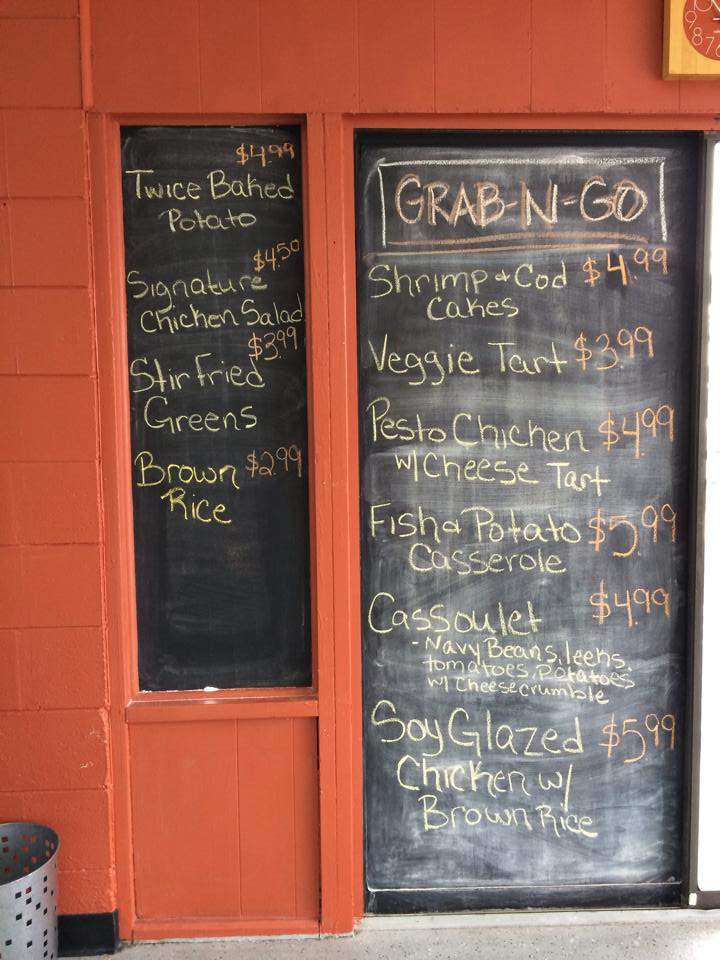 $4.99
Twice Baked
Potato
$4.50
Signature
Chicken Salad
$3.99
Stir Fried
Greens
Brown $2.99
Rice
GRAB-N-GO
Shrimp & Cod $4.99
Cakes
Veggie Tart $3.99
Pesto Chicken $4.99
w/Cheese Tart
Fish & Potato $5.99
Casserole
Cassoulet $4.99
- Navy Beans, leeks,
tomatoes, Potatoes
w/ Cheesecrumble
Soy Glazed $5.99
Chicken w/
Brown Rice
9
8
7